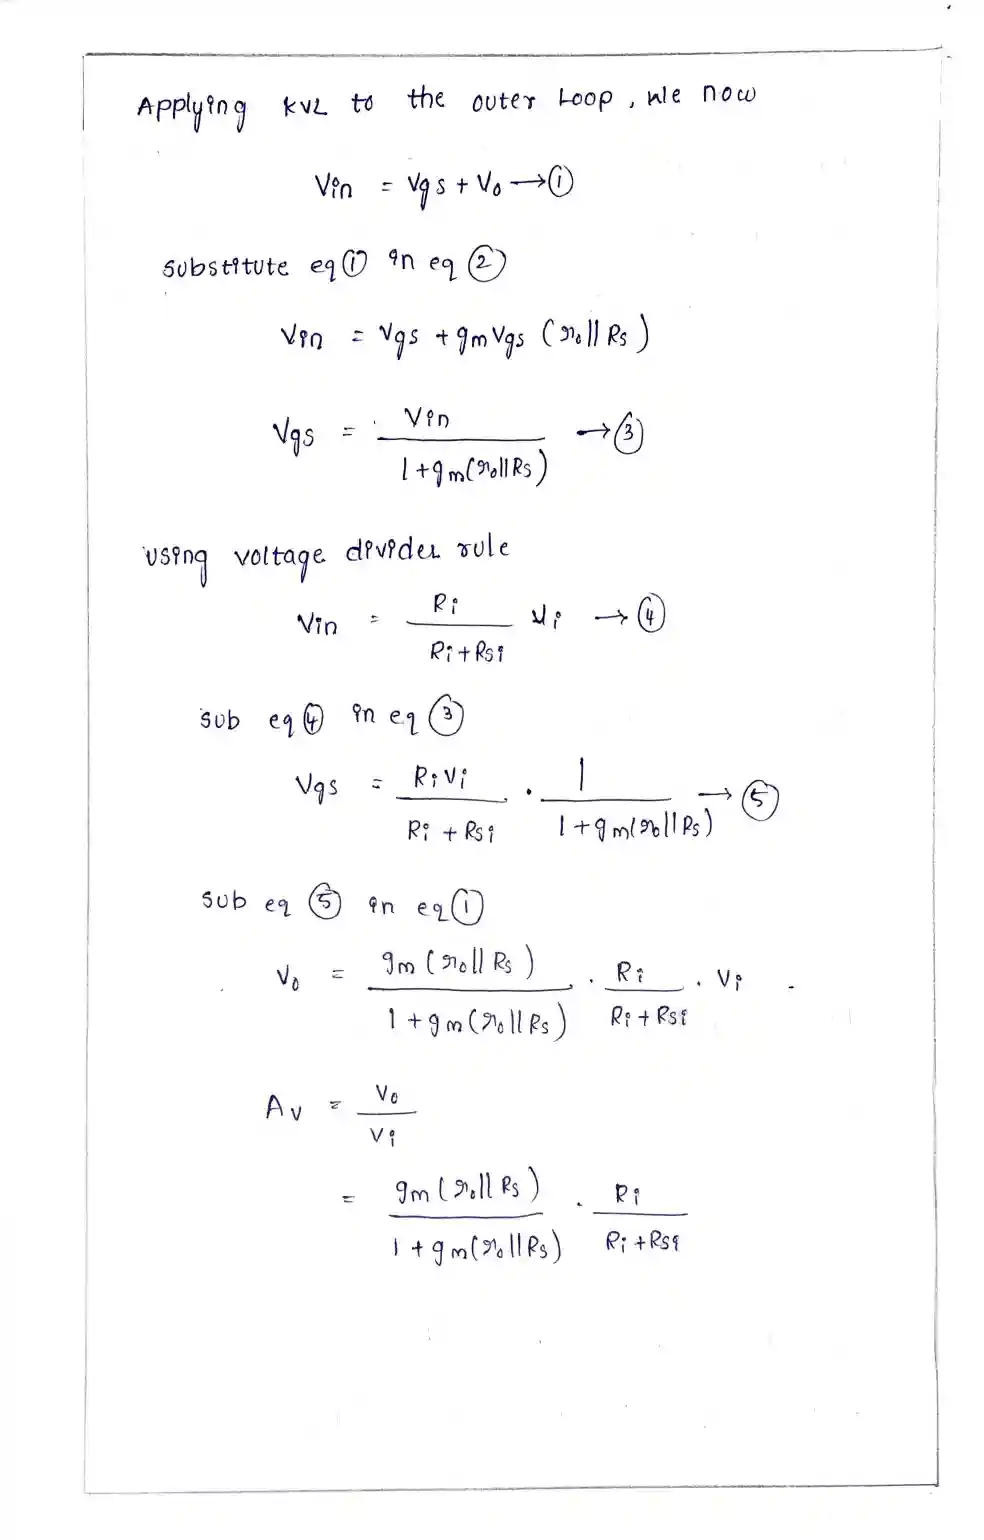 Applying KVL to the outer Loop, we now
Vin = Vgs + Vo → ①
substitute eq ① in eq ②
Vin = Vgs + gmVgs (ro || Rs)
Vgs = Vin / 1 + gm(ro || Rs) → ③
using voltage divider rule
Vin = Ri / Ri + Rsi Vi → ④
sub eq ④ in eq ③
Vgs = Ri Vi / Ri + Rsi . 1 / 1 + gm(ro || Rs) → ⑤
sub eq ⑤ in eq ①
Vo = gm (ro || Rs) / 1 + gm (ro || Rs) . Ri / Ri + Rsi . Vi
Av = Vo / Vi
= gm (ro || Rs) / 1 + gm (ro || Rs) . Ri / Ri + Rsi